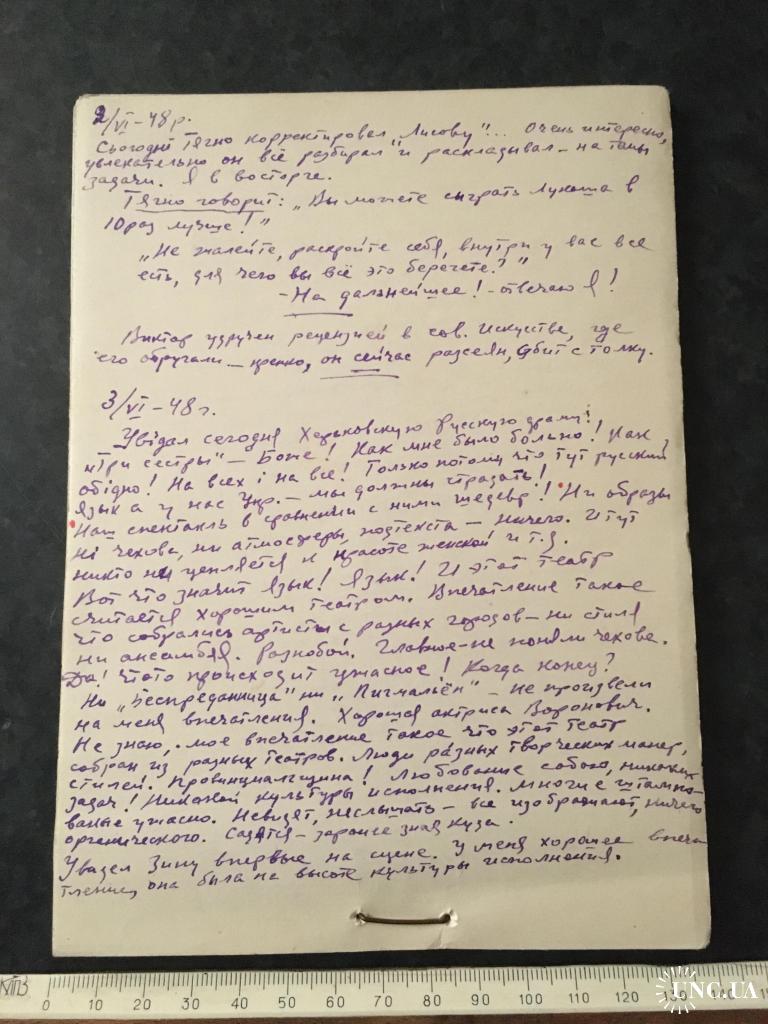 2/VI-48р.
Сьогодні Тягно корректировал „Лисову"... Очень интересно,
увлекательно он всё разбирал и раскладывал – на
задачи. Я в восторге.
Тягно говорит: „Вы можете сыграть Лукаша в
10 раз лучше!"
„Не жалейте, раскройте себя, внутри у вас все
есть, для чего вы всё это бережете?"
– На дальнейшее! – отвечаю я!
Виктор удручен рецензией в сов. Искусстве, где
его обругали – крепко, он сейчас рассеян, сбит с толку.
3/VI-48г.
Увідал сегодня Харьковскую Русскую драму!
„Три сестры" – Боже! Как мне было больно! Как
обідно! На всех і на все! Только потому что тут русский
язык а у нас Укр. – мы должны страдать!
Наш спектакль в сравнении с ними шедевр! Ни образы
ні чехова, ни атмосферы, подтекста – ничего. И тут
никто не цепляется к красоте женской и т.д.
Вот что значит язык! Язык! И этот театр
считается хорошим театром. Впечатление такое
что собрались артисты с разных городов – ни стиля
ни ансамбля. Разнобой. Главное – не поняли чехова.
Да! Что-то происходит ужасное! Когда конец?
Ни „Бесприданница" ни „Пигмальён" – не произвели
на меня впечатления. Хорошая актриса Воронович.
Не знаю, мое впечатление такое что этот театр
собран из разных театров. Люди разных творческих манер,
стилей. Провинциальщина! Любование собою, никаких
задач! Никакой культуры исполнения. Многие штампо-
ваные ужасно. Невидят, неслышать – все изображают, ничего
органического. Садятся – заранее зная куда.
Увидел Зину впервые на сцене. У меня хорошее впеча
тление, она была на высоте культуры исполнения.
0 10 20 30 40 50 60 70 80 90 100 110 120 130 140
UNC.UA